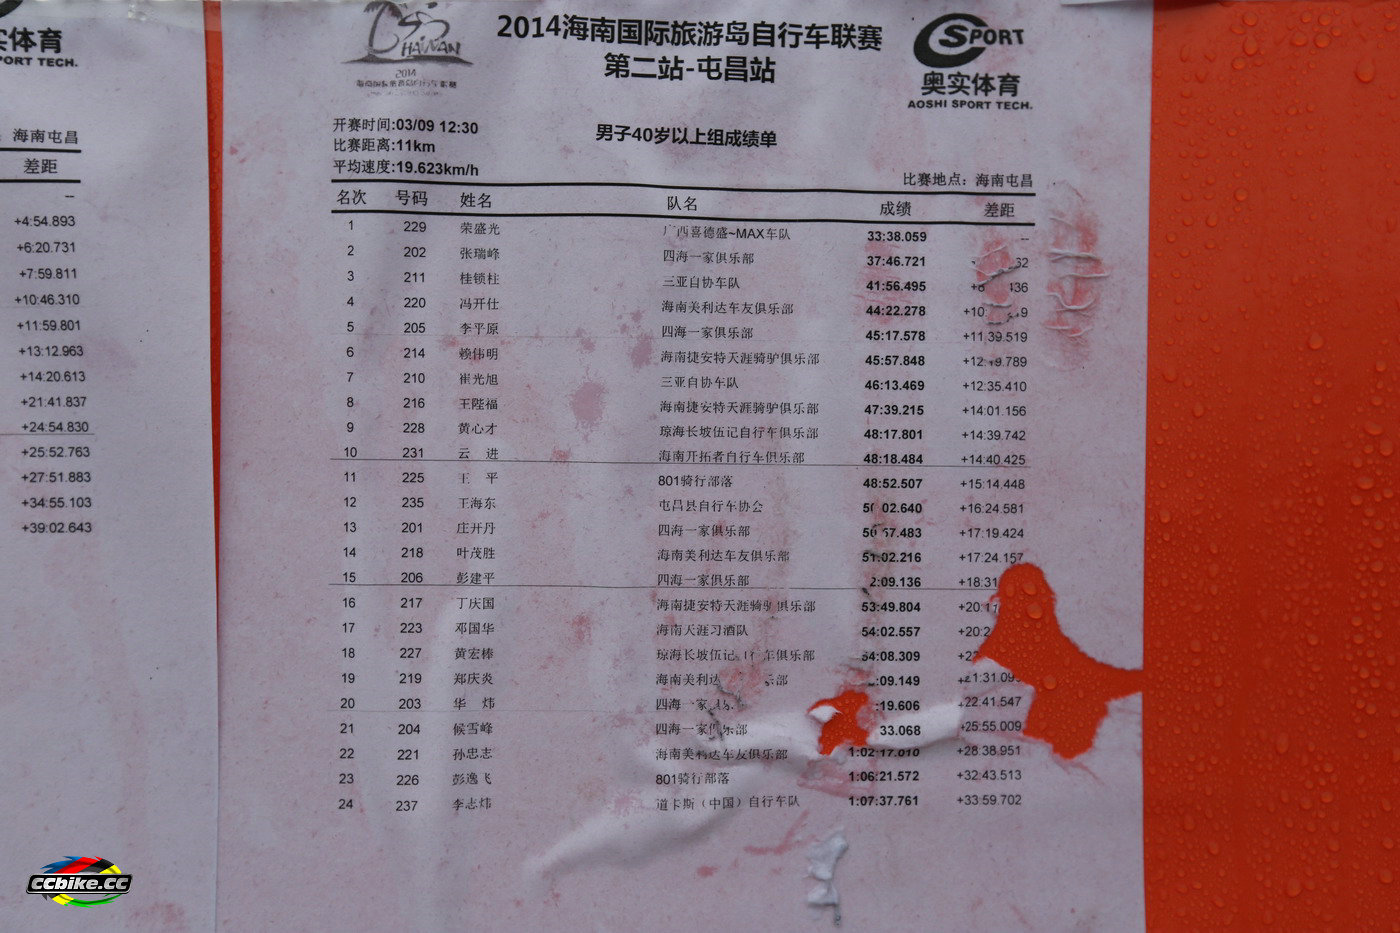 实体育
PORT TECH.
海南屯昌
差距
--
+4:54.893
+6:20.731
+7:59.811
+10:46.310
+11:59.801
+13:12.963
+14:20.613
+21:41.837
+24:54.830
+25:52.763
+27:51.883
+34:55.103
+39:02.643
HAINAN
2014
海南国际旅游岛自行车联赛
2014海南国际旅游岛自行车联赛
第二站-屯昌站
SPORT
奥实体育
AOSHI SPORT TECH.
开赛时间:03/09 12:30
比赛距离:11km
平均速度:19.623km/h
男子40岁以上组成绩单
比赛地点: 海南屯昌
名次 号码 姓名 队名 成绩 差距
1 229 荣盛光 广西喜德盛~MAX车队 33:38.059 --
2 202 张瑞峰 四海一家俱乐部 37:46.721
3 211 桂锁柱 三亚自协车队 41:56.495
4 220 冯开仕 海南美利达车友俱乐部 44:22.278
5 205 李平原 四海一家俱乐部 45:17.578 +11:39.519
6 214 赖伟明 海南捷安特天涯骑驴俱乐部 45:57.848 +12:19.789
7 210 崔光旭 三亚自协车队 46:13.469 +12:35.410
8 216 王陛福 海南捷安特天涯骑驴俱乐部 47:39.215 +14:01.156
9 228 黄心才 琼海长坡伍记自行车俱乐部 48:17.801 +14:39.742
10 231 云 进 海南开拓者自行车俱乐部 48:18.484 +14:40.425
11 225 王 平 801骑行部落 48:52.507 +15:14.448
12 235 王海东 屯昌县自行车协会 50:02.640 +16:24.581
13 201 庄开丹 四海一家俱乐部 50:57.483 +17:19.424
14 218 叶茂胜 海南美利达车友俱乐部 51:02.216 +17:24.157
15 206 彭建平 四海一家俱乐部 2:09.136 +18:31
16 217 丁庆国 海南捷安特天涯骑驴俱乐部 53:49.804 +20:11
17 223 邓国华 海南天涯习酒队 54:02.557 +20:2
18 227 黄宏棒 琼海长坡伍记自行车俱乐部 54:08.309
19 219 郑庆炎 海南美利达 乐部 :09.149 +21:31.09
20 203 华 炜 四海一家俱乐 :19.606 +22:41.547
21 204 候雪峰 四海一家俱乐部 33.068 +25:55.009
22 221 孙忠志 海南美利达车友俱乐部 1:02:17.010 +28:38.951
23 226 彭逸飞 801骑行部落 1:06:21.572 +32:43.513
24 237 李志炜 道卡斯（中国）自行车队 1:07:37.761 +33:59.702
ccbike.cc